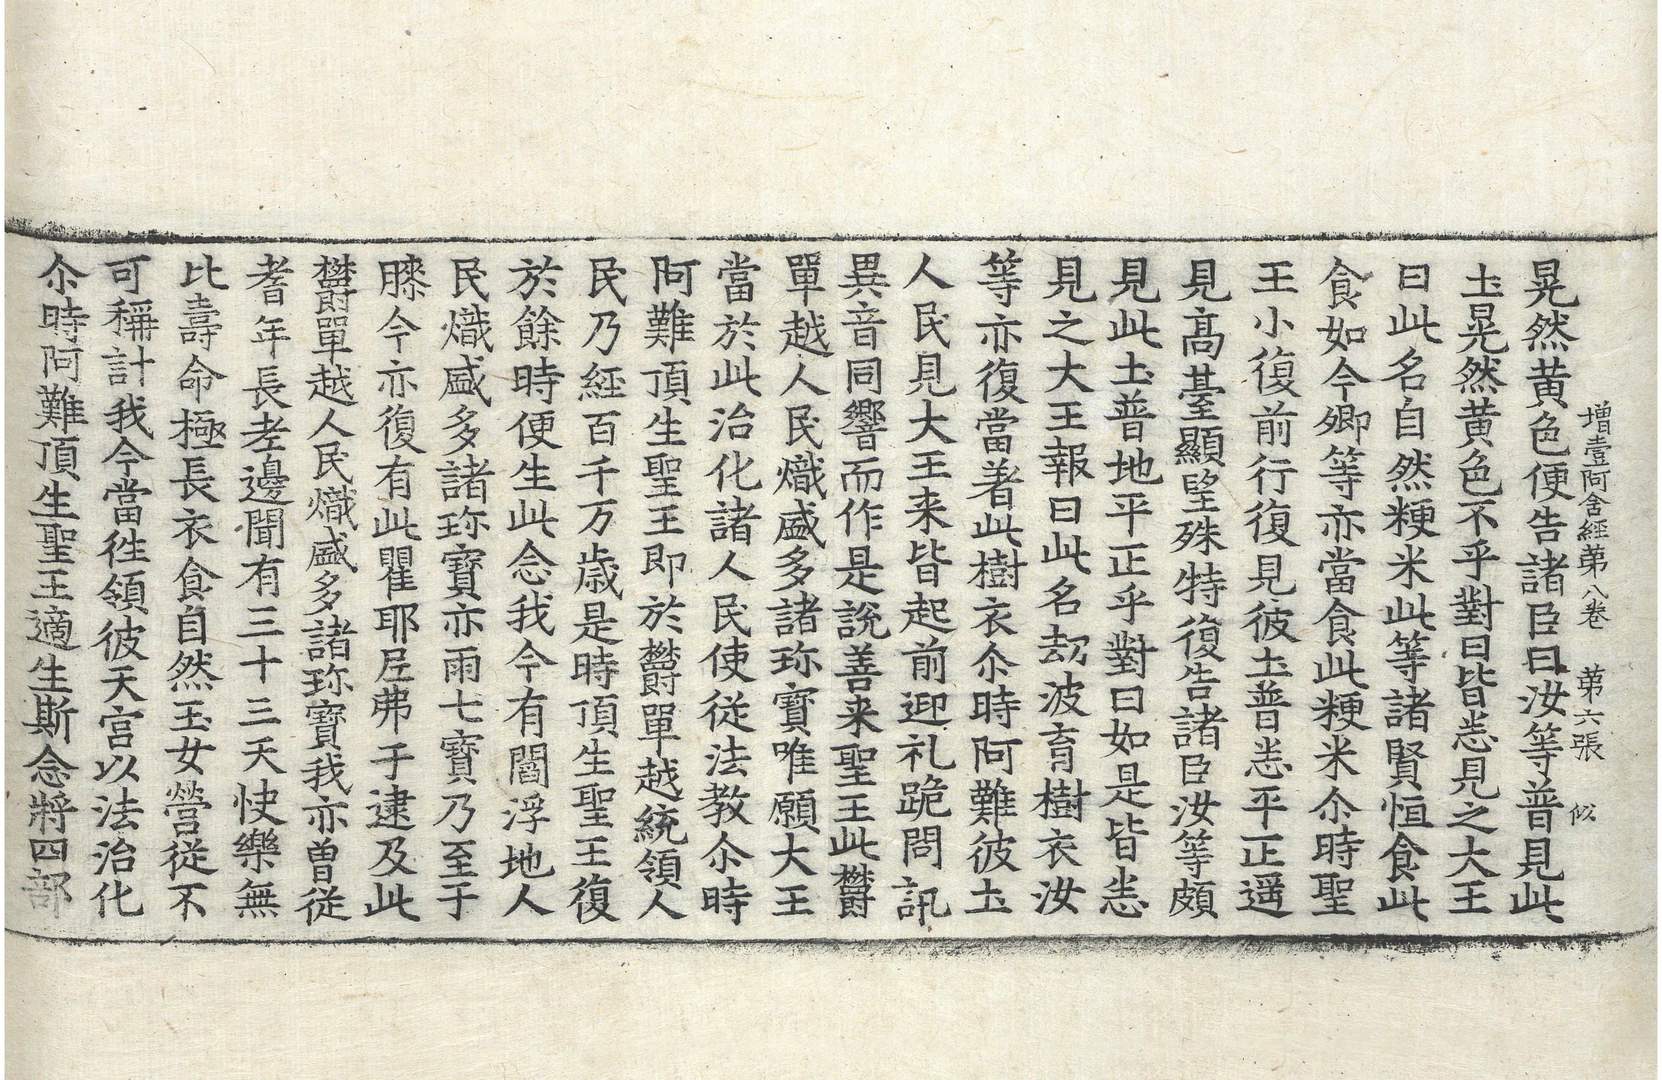 增壹阿含經第八卷 第六張 似
晃然黃色便告諸臣曰汝等普見此
土晃然黃色不乎對曰皆悉見之大王
曰此名自然粳米此等諸賢恒食此
食如今卿等亦當食此粳米尒時聖
王小復前行復見彼土普悉平正遥
見高臺顯望殊特復告諸臣汝等頗
見此土普地平正乎對曰如是皆悉
見之大王報曰此名劫波育樹衣汝
等亦復當著此樹衣尒時阿難彼土
人民見大王来皆起前迎礼跪問訊
異音同響而作是說善来聖王此欝
單越人民熾盛多諸珎寶唯願大王
當於此治化諸人民使從法教尒時
阿難頂生聖王即於欝單越統領人
民乃經百千万歲是時頂生聖王復
於餘時便生此念我今有閻浮地人
民熾盛多諸珎寶亦雨七寶乃至于
膝今亦復有此瞿耶尼弗于逮及此
欝單越人民熾盛多諸珎寶我亦曾從
耆年長老邊聞有三十三天快樂無
比壽命極長衣食自然玉女營從不
可稱計我今當徃領彼天宫以法治化
尒時阿難頂生聖王適生斯念將四部